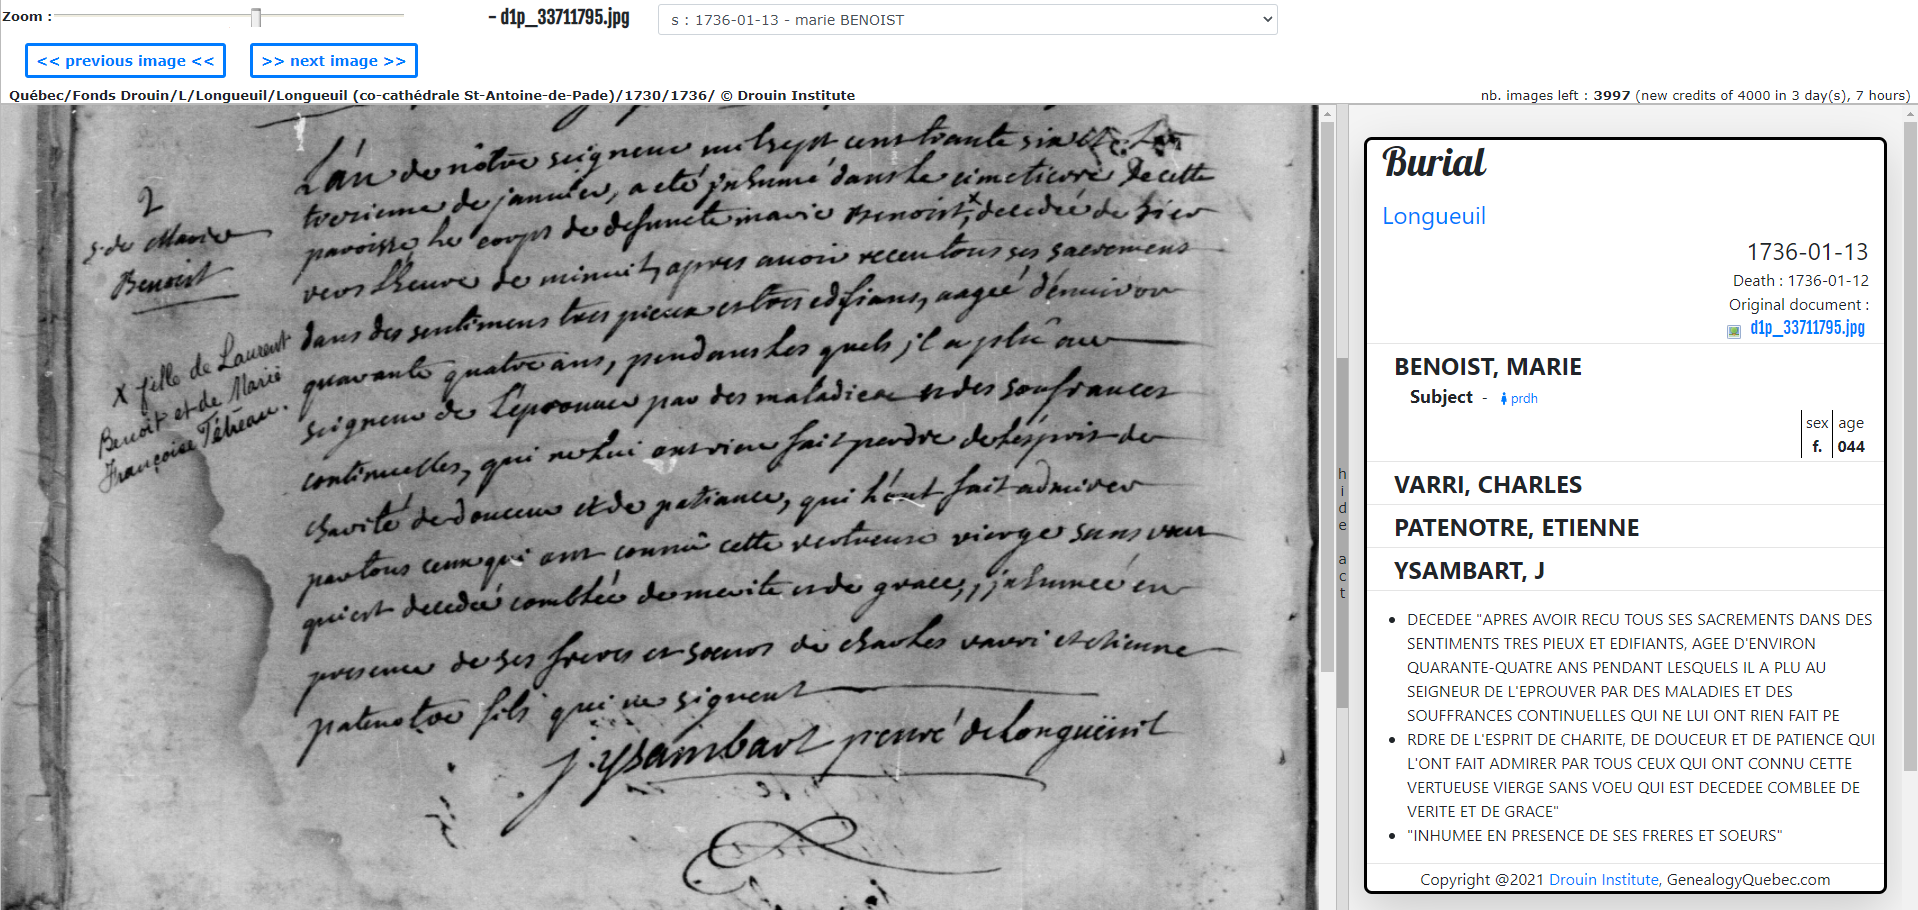 Zoom :
- d1p_33711795.jpg
s : 1736-01-13 - marie BENOIST
<< previous image <<
>> next image >>
Québec/Fonds Drouin/L/Longueuil/Longueuil (co-cathédrale St-Antoine-de-Pade)/1730/1736/ © Drouin Institute
nb. images left : 3997 (new credits of 4000 in 3 day(s), 7 hours)
2
s. de Marie
Benoist
X fille de Laurent
Benoit et de Marie
Françoise Tétreau.
L'an de nôtre seigneur mil sept cens trante six et le
treizieme de janvier, a eté jnhumé dans le cimetiere de cette
paroisse le corps de defuncte marie Benoist,x decedée de hier
vers l'heure de minuit, apres avoir receu tous ses sacremens
dans des sentimens tres pieux et tres edifians, aageé d'environ
quarante quatre ans, pendans les quels jl a plû au
seigneur de l'eprouver par des maladies et des soufrances
continuelles, qui ne lui ont rien fait perdre de l'esprit de
charité de douceur et de patiance, qui l'ont fait admirer
par tous ceux qui ont connû cette vertueuse vierge sans vœu
qui est decedeé combleé de merite et de grace, jnhumeé en
presence de ses freres et sœurs de charles varri et etienne
patenotre fils qui ne signent
j. ysambart p curé de Longueüil
hide act
Burial
Longueuil
1736-01-13
Death : 1736-01-12
Original document :
d1p_33711795.jpg
BENOIST, MARIE
Subject - prdh
sex age
f. 044
VARRI, CHARLES
PATENOTRE, ETIENNE
YSAMBART, J
DECEDEE "APRES AVOIR RECU TOUS SES SACREMENTS DANS DES
SENTIMENTS TRES PIEUX ET EDIFIANTS, AGEE D'ENVIRON
QUARANTE-QUATRE ANS PENDANT LESQUELS IL A PLU AU
SEIGNEUR DE L'EPROUVER PAR DES MALADIES ET DES
SOUFFRANCES CONTINUELLES QUI NE LUI ONT RIEN FAIT PE
RDRE DE L'ESPRIT DE CHARITE, DE DOUCEUR ET DE PATIENCE QUI
L'ONT FAIT ADMIRER PAR TOUS CEUX QUI ONT CONNU CETTE
VERTUEUSE VIERGE SANS VOEU QUI EST DECEDEE COMBLEE DE
VERITE ET DE GRACE"
"INHUMEE EN PRESENCE DE SES FRERES ET SOEURS"
Copyright @2021 Drouin Institute, GenealogyQuebec.com